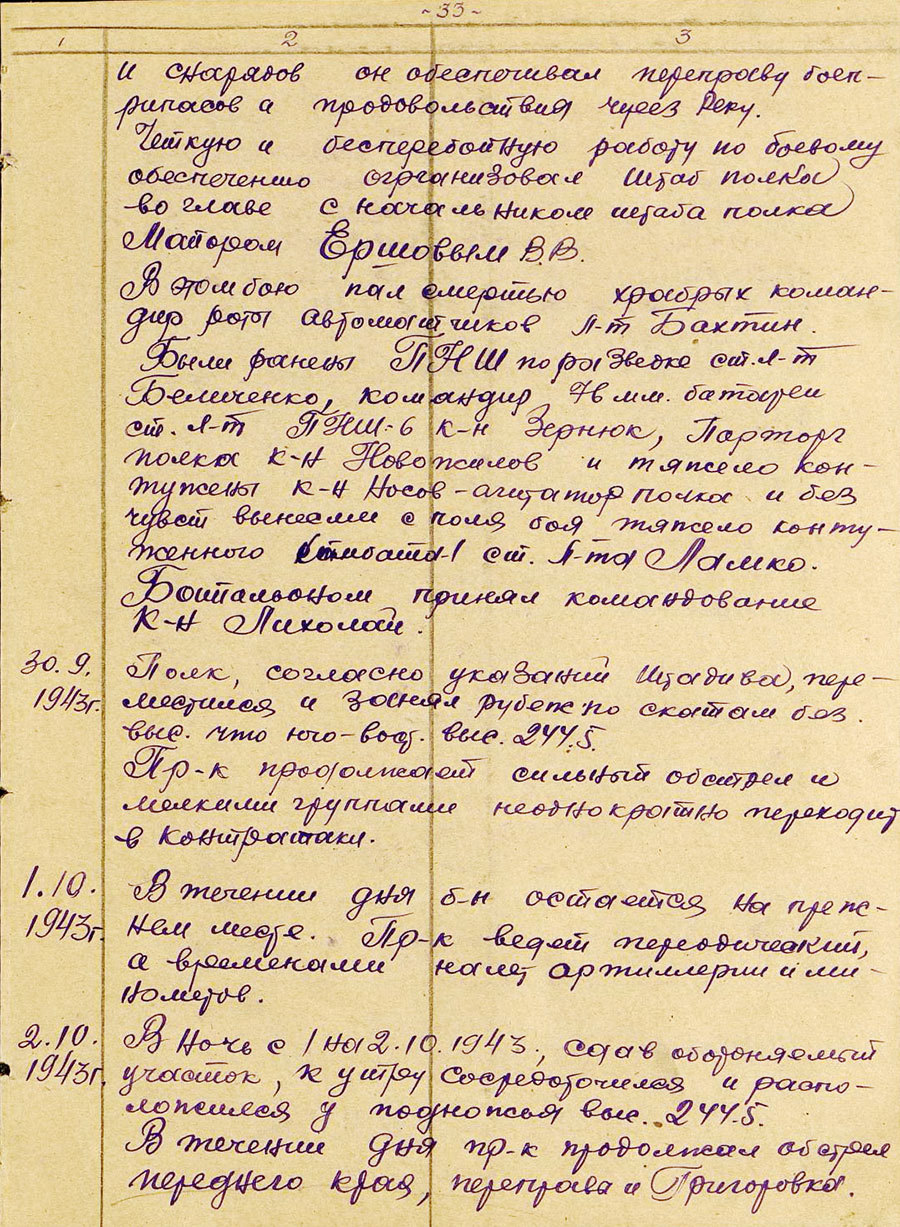 ~33~
1 2 3
и снарядов он обеспечивал переправу боеп-
рипасов и продовольствия через реку.
Четкую и бесперебойную работу по боевому
обеспечению организовал Штаб полка
во главе с начальником штаба полка
Майором Ершовым В.В.
В этом бою пал смертью храбрых коман-
дир роты автоматчиков л-т Бахтин.
Были ранены ПНШ по разведке ст. л-т
Беличенко, командир 76 мм. батареи
ст. л-т ПНШ-6 к-н Зернюк, Парторг
полка к-н Новожилов и тяжело кон-
тужены к-н Носов - агитатор полка и без
чувст вынесли с поля боя тяжело конту-
женного ст. л-та Ламко.
Батальоном принял командование
к-н Лихолай.
30.9. Полк, согласно указаний Штадива, пере-
1943г. местился и занял рубеж: по скатам без.
выс. что юго-вост. выс. 244.5.
Пр-к продолжает сильный обстрел и
мелкими группами неоднократно переходит
в контратаки.
1.10. В течении дня б-н остается на преж-
1943г. нем месте. Пр-к ведет периодический,
а временами налет артиллерии и ми-
нометов.
2.10. В ночь с 1 на 2.10.1943., сдав обороняемый
1943г. участок, к утру сосредоточился и распо-
ложился у подножья выс. 244.5.
В течении дня пр-к продолжал обстрел
переднего края, переправа и Григоровка.